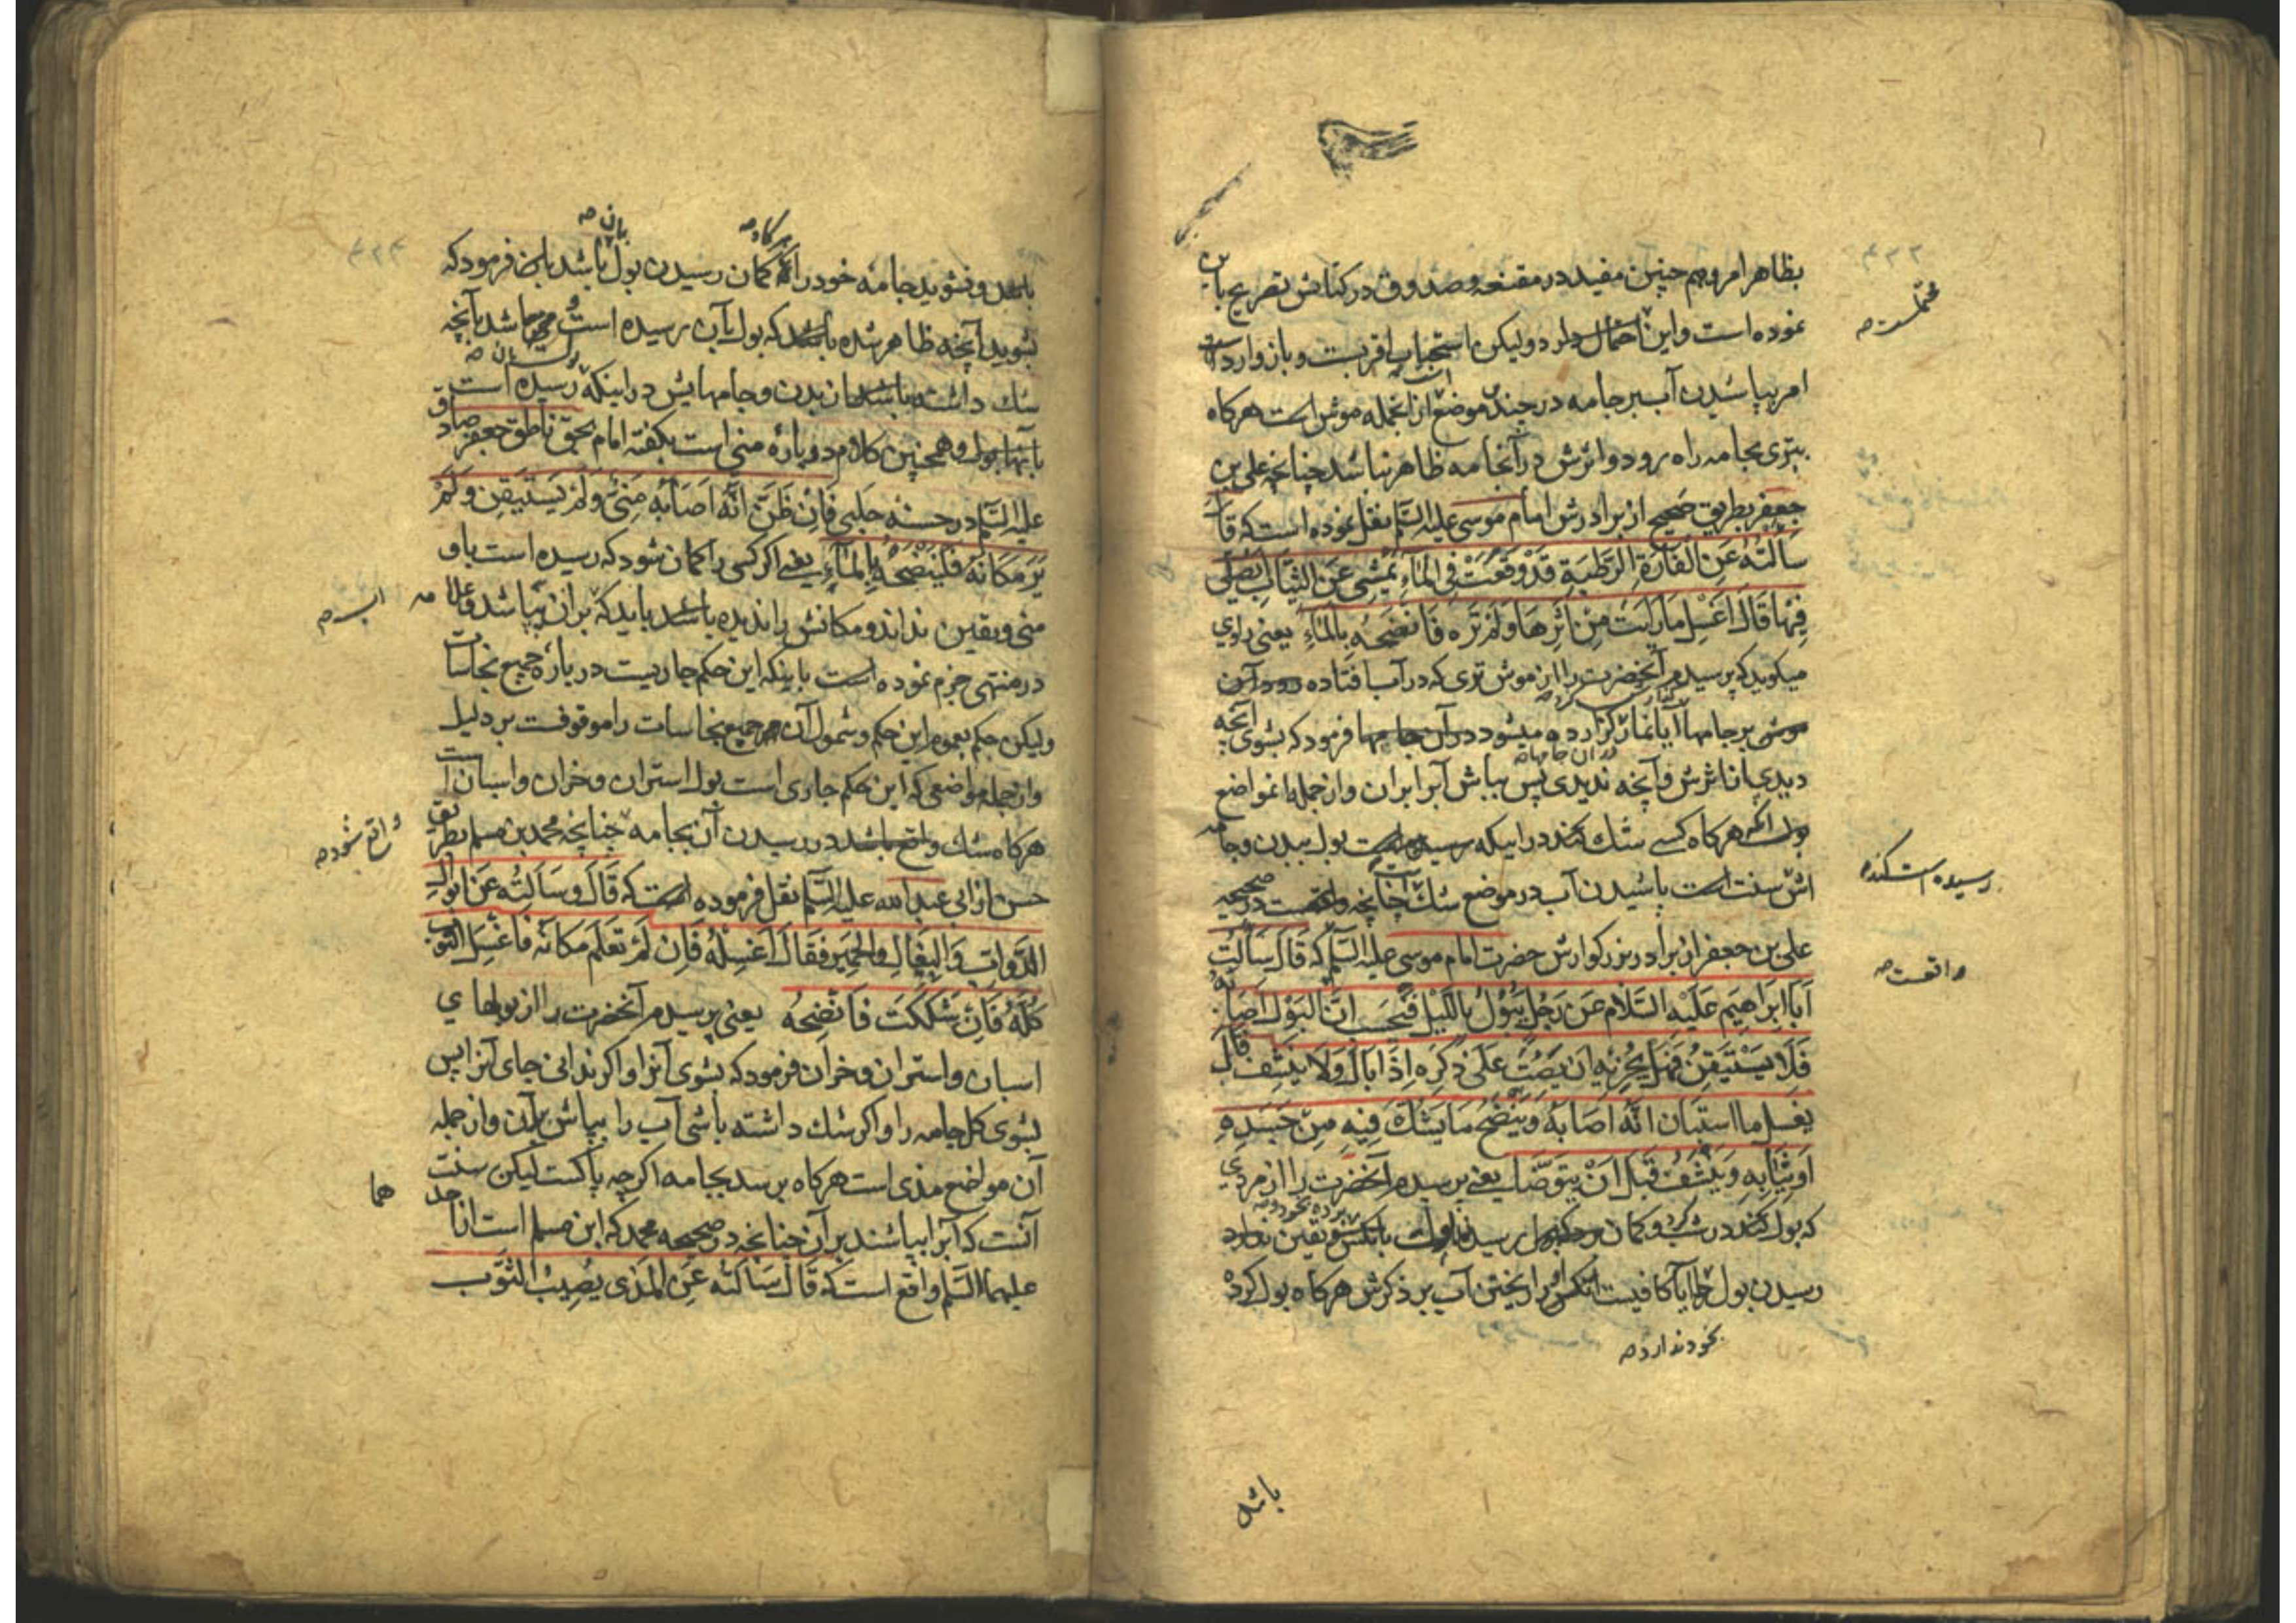 بظاهر امر و هم چنین مفید در مقنعه و صدوق در کتابش تصریح باین
نموده است و این احتمال دارد و لیکن استحباب اقربست و باز وارد است
امر بپاشیدن آب بر جامه در چند موضع از انجمله موش است هرکاه
بتری بجامه راه رود و اثرش در آنجامه ظاهر نباشد چنانچه علی بن
جعفر بطریق صحیح از برادرش امام موسی علیه السّلم نقل نموده است که قال
سَاَلتُهُ عَنِ الفَارَةِ الرَّطبَةِ قَدْ وَقَعَتْ فِی الماءِ تَمْشِی عَنِ الثِّیَابِ اَیُصَلِّی
فِیهَا قَالَ اَغسِل مَا رَاَیتَ مِنْ اَثَرِهَا وَ لَمْ تَرَه فَانضَحهُ بِالماءِ یعنی راوی
میکوید که پرسیدم آنحضرت را از موش تری که در آب افتاده
بر جامها آیا نماز کزارده میشود در آن جامها فرمود که بشوی آنچه
دیدی از اثرش و آنچه ندیدی پس بپاش آبرا بران و از جمله انمواضع
هرکاه کسی شك کند در اینکه رسیده است بول ببدن و جامه
اش سنت است پاشیدن آب در موضع شك چنانچه در صحیحه
علی بن جعفر از برادر بزرکوارش حضرت امام موسی علیه السّلم که قَالَ سَاَلتُ
اَبَا اِبرَاهِیمَ عَلَیْهِ السَّلَام عَن رَجُلٍ یَبُوْلُ بِاللَّیْلِ فَیَحْسَبُ اَنَّ البَوْلَ اَصَابَهُ
فَلَا یَسْتَیقِنُ فَهَل یُجْزِیهِ اَن یَصُبَّ عَلَی ذَکَرِه اِذَا بَالَ وَلَا یَنشِفُ قَالَ
یغسل ما استبان انَّه اصَابَهُ وَ یَنْضَحُ مَا یَشُكُّ فِیهِ مِنْ جَسَدِهِ
اَو ثِیَابِهِ وَ یَنشِفُ قَبْلَ اَنْ یَتَوَضَّا یعنی پرسیدم آنحضرت را از مردی
که بول کند در شب و کمان
رسیدن بول را آیا کافیست آنکس را ریختن آب بر ذکرش هرکاه بول کرده
محتملست صه
رسیده است کند صه
واقعست صه
بخود ندارد صه
باشد
باشد و نشوید جامه خود را اکر کمان رسیدن بول باشد باین فرمود که
بشوید آنچه ظاهر شده باشد که بول بآن رسیده است و بپاشد بآنچه
شك داشته باشد از بدن و جامهایش در اینکه رسیده است
بآنها بول و همچنین کلام در باره منی است بکفته امام بحق ناطق جعفر صادق
علیه السّلم در حسنه حلبی فَاِن ظَنَّ انَّه اَصَابَهُ مَنِیٌّ وَلَمْ یَستَیقِن وَلَمْ
یَرَ مَکَانَهُ فَلیَنضَحْهُ بِالماءِ یعنی اکر کسی را کمان شود که رسیده است باو
منی و یقین نداند و مکانش را ندیده باشد باید که بران بپاشد و علامه
در منتهی جزم نموده است باینکه این حکم جاریست در باره جمیع نجاسات
ولیکن حکم بعموم این حکم و شمول آن جمیع نجاسات را موقوفست بر دلیل
و از جمله مواضعی که این حکم جاری است بول استران و خران و اسبان است
هرکاه شك واقع باشد در رسیدن آن بجامه چنانچه محمد بن مسلم بطریق
حسن از ابی عبد الله علیه السّلم نقل فرموده است که قَالَ وَ سَاَلتُه عَن اَبوَالِ
الدَّوَابِ وَ البِغَالِ وَ الحَمِیرِ فَقَالَ اَغسِلْهُ فَاِن لَمْ تَعْلَم مَکَانَه فَاغْسِلِ الثَّوبَ
کُلَّهُ فَاِن شَکَکتَ فَانضِحهُ یعنی پرسیدم آنحضرت را از بولهای
اسبان و استران و خران فرمود که بشوی آنرا و اکر ندانی جای آنرا پس
بشوی کل جامه را و اکر شك داشته باشی آب را بپاش بر آن و از جمله
آن مواضع مذی است هرکاه برسد بجامه اکر چه پاکست لیکن سنت
آنست که آبرا بپاشند بر آن چنانچه در صحیحه محمد که ابن مسلم است از احد
علیهما السّلم واقع است که قَالَ سَاَلتُه عَنِ المَذی یُصِیبُ الثَّوب
بآن صه
هرکاه صه
آب صه
واقع شود صه
هما